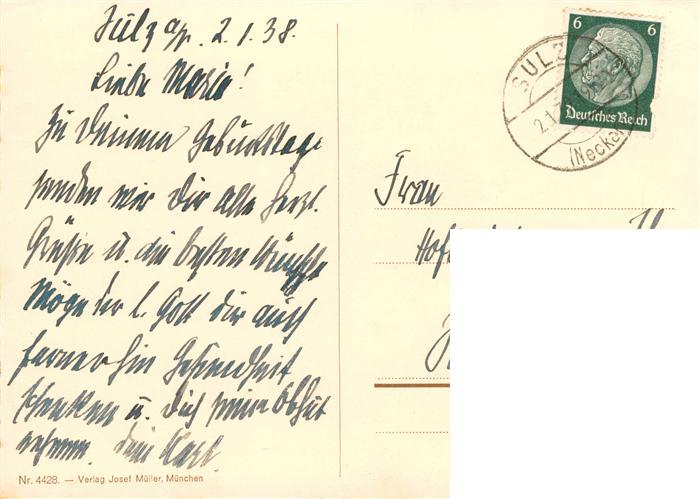 Sulz a/N. 2.1.38.
Liebe Maria!
Zu Deinem Geburtstage
senden wir Dir alle herzl.
Grüße u. die besten Wünsche
Möge der l. Gott dir auch
fernerhin Gesundheit
schenken u. Dich seine Obhut
nehmen. Dein Karl.
Nr. 4428. — Verlag Josef Müller, München
6 6
Deutsches Reich
SULZ
2.1.
(Neckar)
Frau